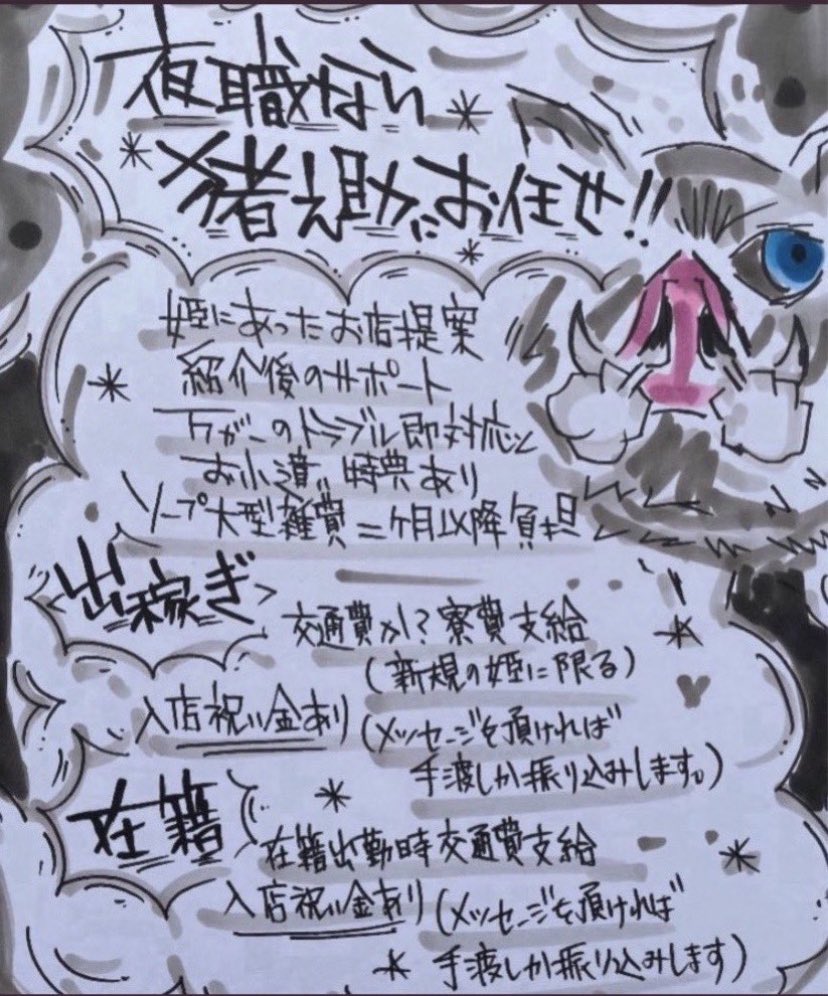 夜職なら
猪え助がお任せ!!
姫にあったお店提案
紹介後のサポート
万が一のトラブル即対応
お小遣い特典あり
ソープ大型雑費二ヶ月以降負担
<出稼ぎ>
交通費か!?寮費支給
(新規の姫に限る)
入店祝い金あり(メッセージを頂ければ
手渡しか振り込みします。)
在籍
在籍出勤時交通費支給
入店祝い金あり(メッセージを頂ければ
手渡しか振り込みします)